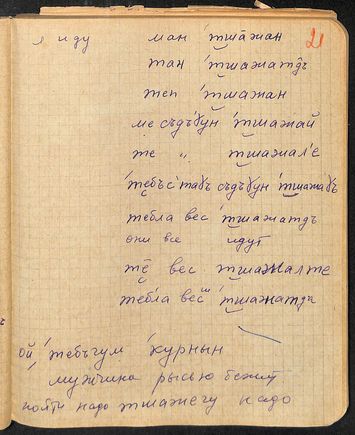 21
я иду ман ′тша̄жан
тан ′тшажатдъ
теп ′тшажан
ме съдъɣун ′тшажай
те „ тшажал′е
′тебъс′таɣъ съдъɣун ′тшажаɣъ
тебла вес ′тшажатдъ
они все идут
тё вес тшажалте
тебла вес ′тшажатда
ой ′тебъгум ′курнын
мужчина рысью бежит
пойти надо тшажегу надо